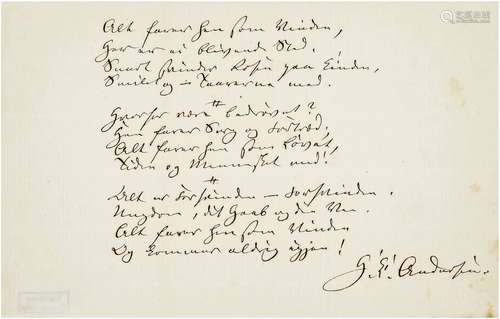 Alt farer hen som Vinden,
Her er ei blivende Sted,
Snart svinder Rosen paa Kinden,
Smilet og – Taarerne med.
Hvorfor være bedrøvet?
Hen farer Sorg og Fortræd,
Alt farer hen som Løvet,
Tiden og Mennesket med!
Alt er Forsvinden – Forsvinden.
Ungdom, dit Haab og din Ven.
Alt farer hen som Vinden
Og kommer aldrig igjen!
H. C. Andersen.